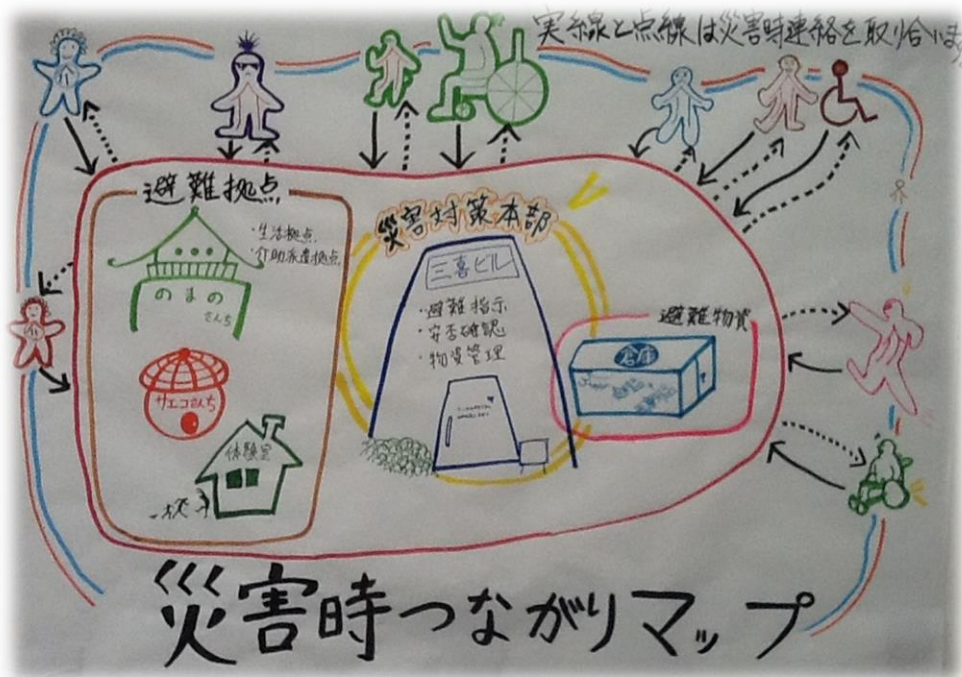 実線と点線は災害時連絡を取り合います
避難拠点
・生活拠点
・介助派遣拠点
のまの
さんち
サエコさんち
体験室
災害対策本部
三喜ビル
・避難指示
・安否確認
・物資管理
避難物資
倉庫
介
介
災害時つながりマップ